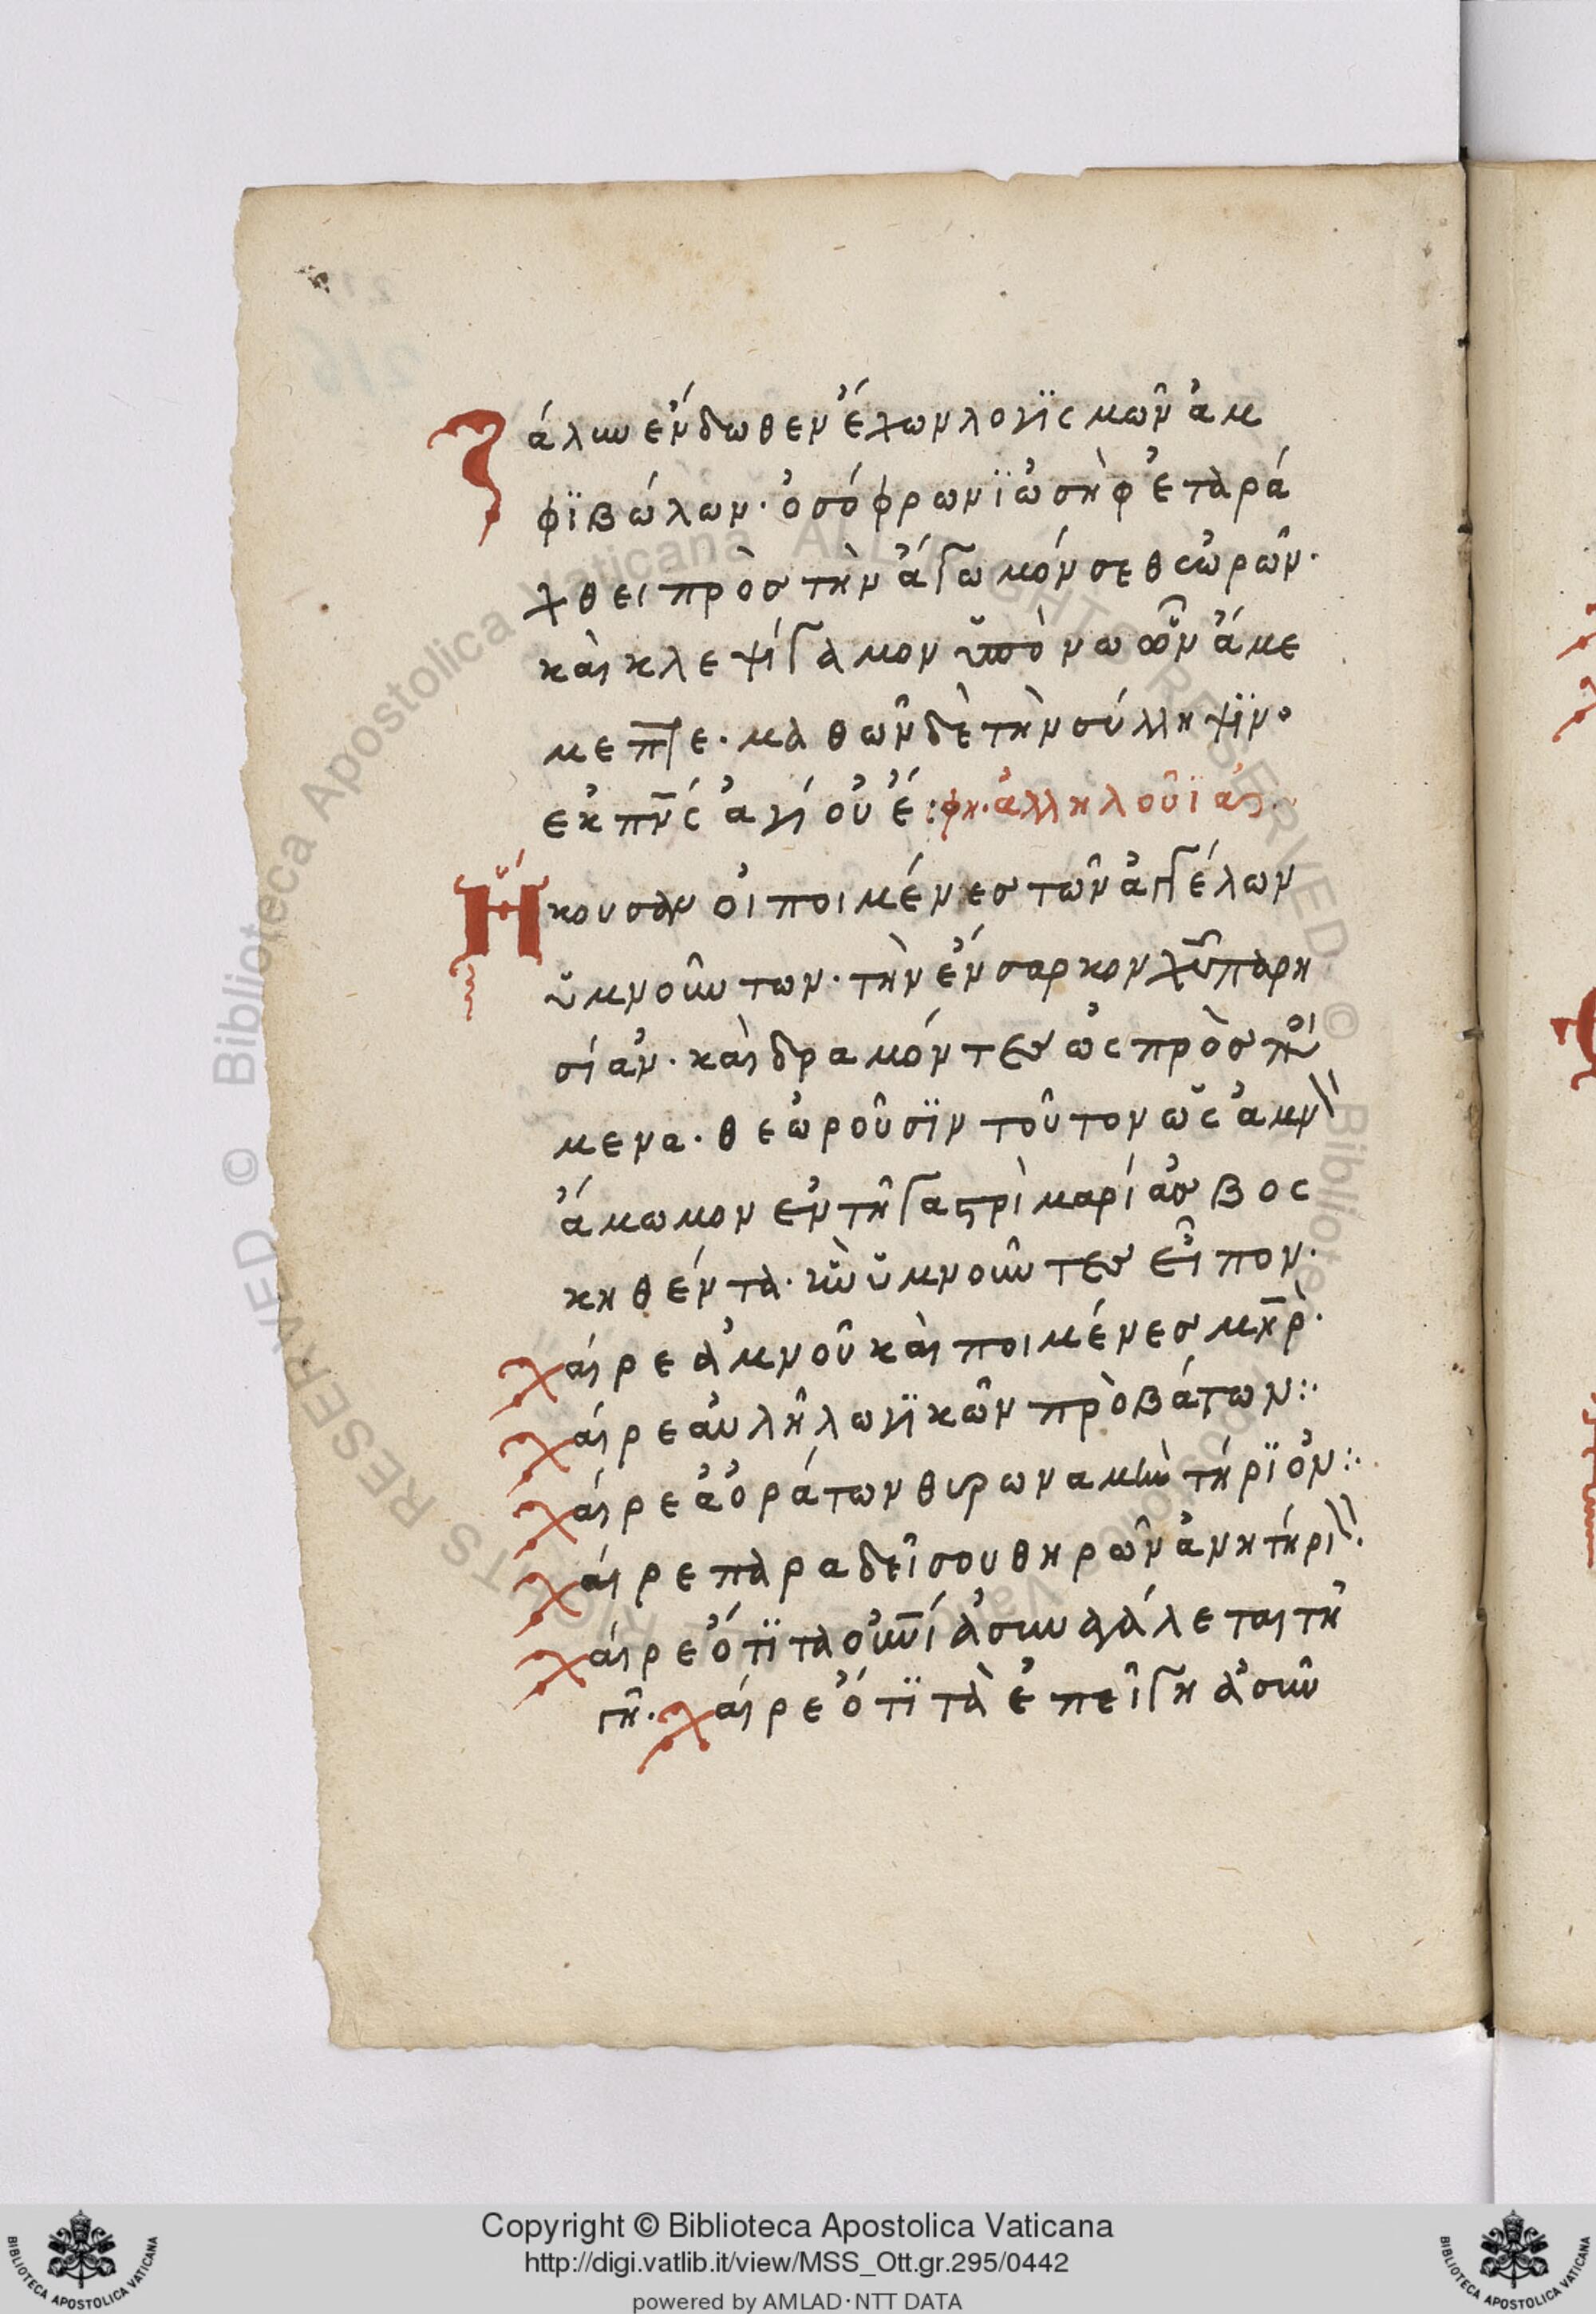 Ζάλην ἐνδωθεν ἔχων λογϊσμῶν ἀμ
φϊβώλων· ὁ σόφρων ϊὠσὴφ ἐταρά
χθει πρὸσ τὴν ἄγωμόν σε θεὠρῶν·
καὶ κλεψίγαμον ὑπὸνωῶν ἄμε
μεπτε· μαθῶν δὲ τὴν σύλληψϊν·
ἐκ πν̅ς ἁγίου ἔ:φη· ἀλληλούϊα·
Ἤκουσαν οἱ ποιμένεσ τῶν ἀγγέλων
ὑμνοῦντων· τὴν ἔνσαρκον χῦ παρη
σίαν· καὶ δραμόντεσ ὡς πρὸσ ποι
μενα· θεὠροῦσϊν τοῦτον ὡς ἀμν
ἄμωμον ἐν τῇ γαστρὶ μαρίασ βος
κηθέντα· ἣν ὑμνοῦντεσ εἶπον·
χαίρε ἀμνοῦ καὶ ποιμένεσ μη̅ρ·
χαίρε αὐλῆ λωγϊκῶν πρὸβάτων:·
χαίρε ἀὀράτων θυρων αμυντήρϊον:·
χαίρε παραδείσου θηρῶν ἀνητήρι·
χαίρε ὅτϊ τα οὐνί ἀσυναγάλεται τῇ
γῇ· χαίρε ὅτϊ τὰ ἐπείγη ἀσυν